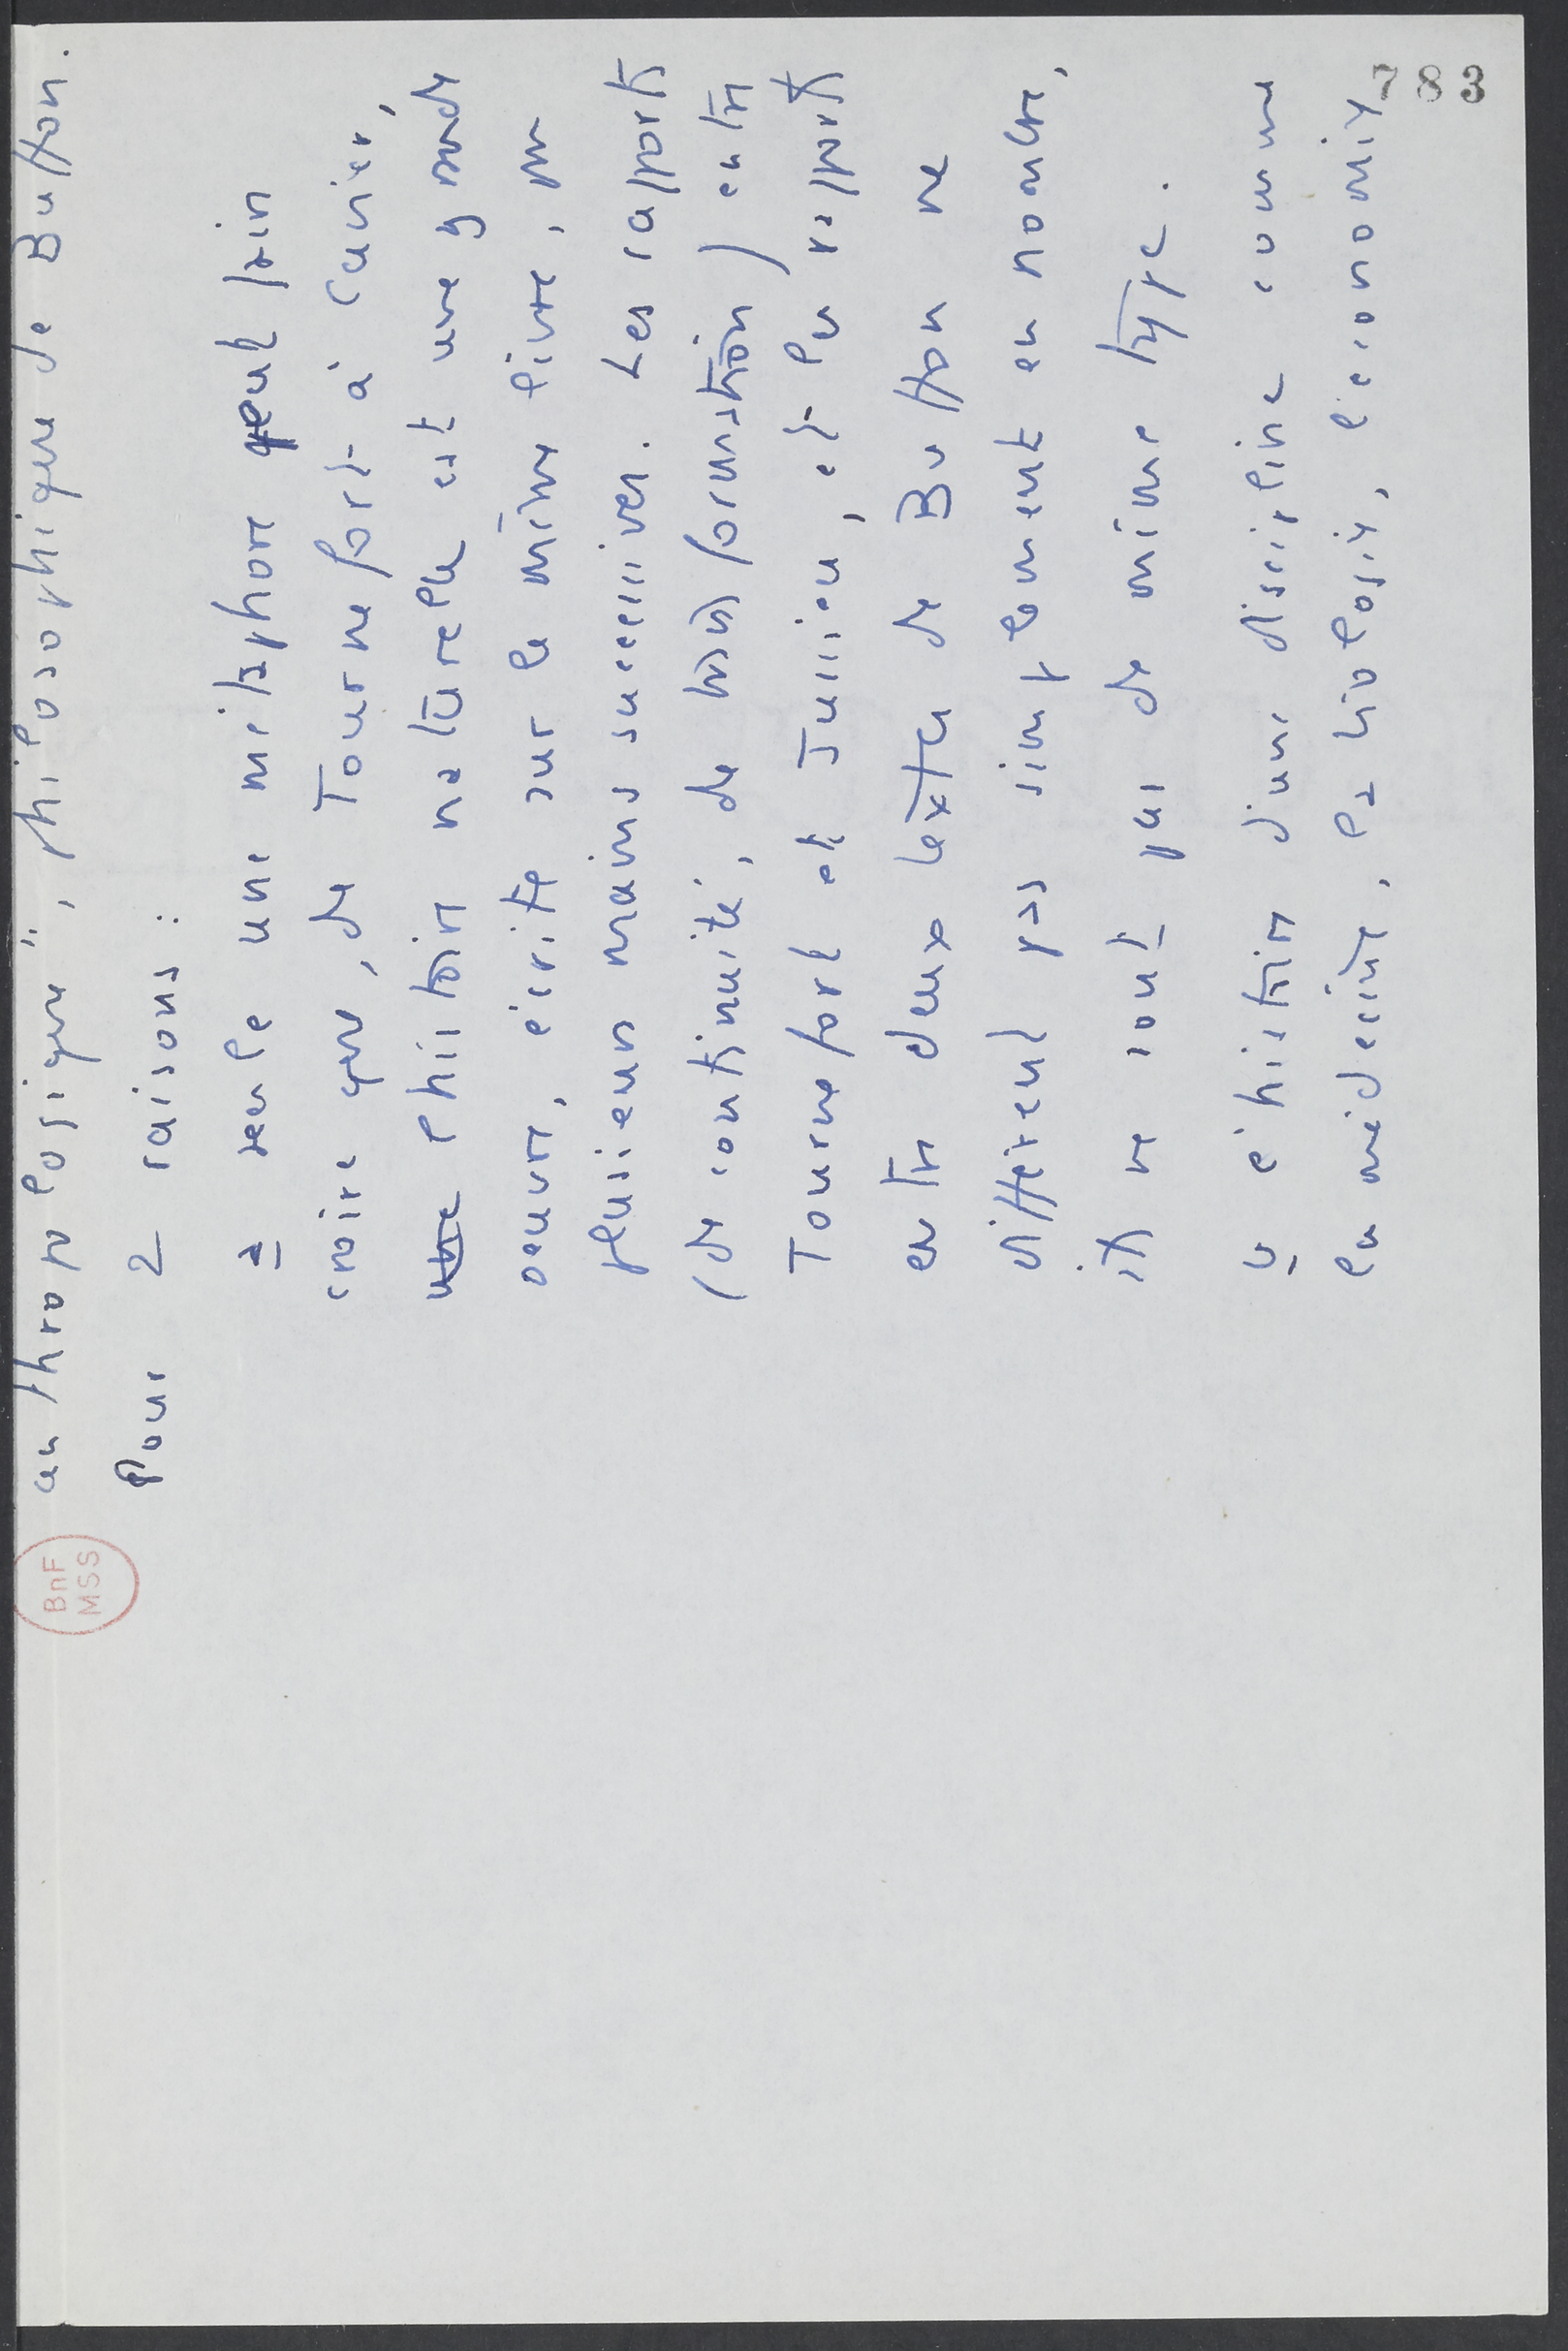 anthropologique", philosophique de Buffon.
Pour 2 raisons :
a seule une métaphore peut faire
croire que, de Tournefort à Cuvier,
l'histoire naturelle est une grande
œuvre, écrite sur le même livre, par
plusieurs mains successives. Les rapports
(de continuité, de transformation) entre
Tournefort et Jussieu, et les rapports
entre deux textes de Buffon ne
diffèrent pas simplement en nombre,
ils ne sont pas de même type.
b l'histoire d'une discipline comme
la médecine, la biologie, l'économie
783
BnF
MSS